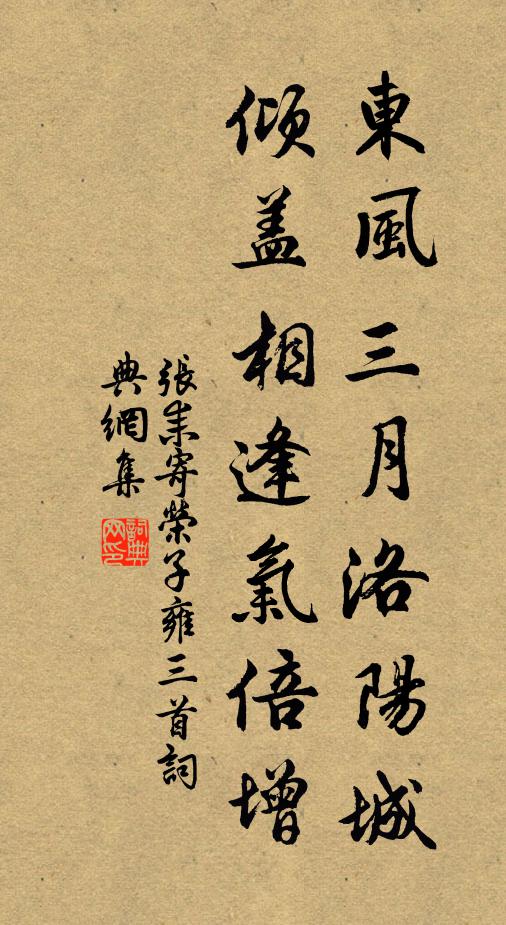 東風三月洛陽城
傾盖相逢氣倍增
張耒寄榮子雍三首詞
典網集
詞典網印